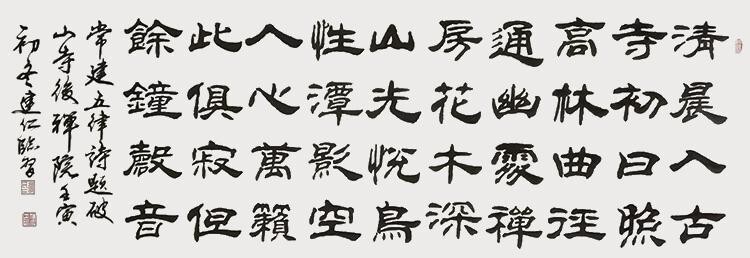 清晨入古
寺初日照
高林曲徑
通幽處禪
房花木深
山光悅鳥
性潭影空
人心萬籟
此俱寂但
餘鐘磬音
常建五律詩題破
山寺後禪院壬寅
初冬建仁臨習